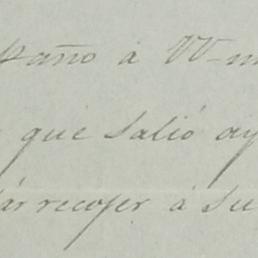 paño à W-m
que salió ay
dár recojer á su